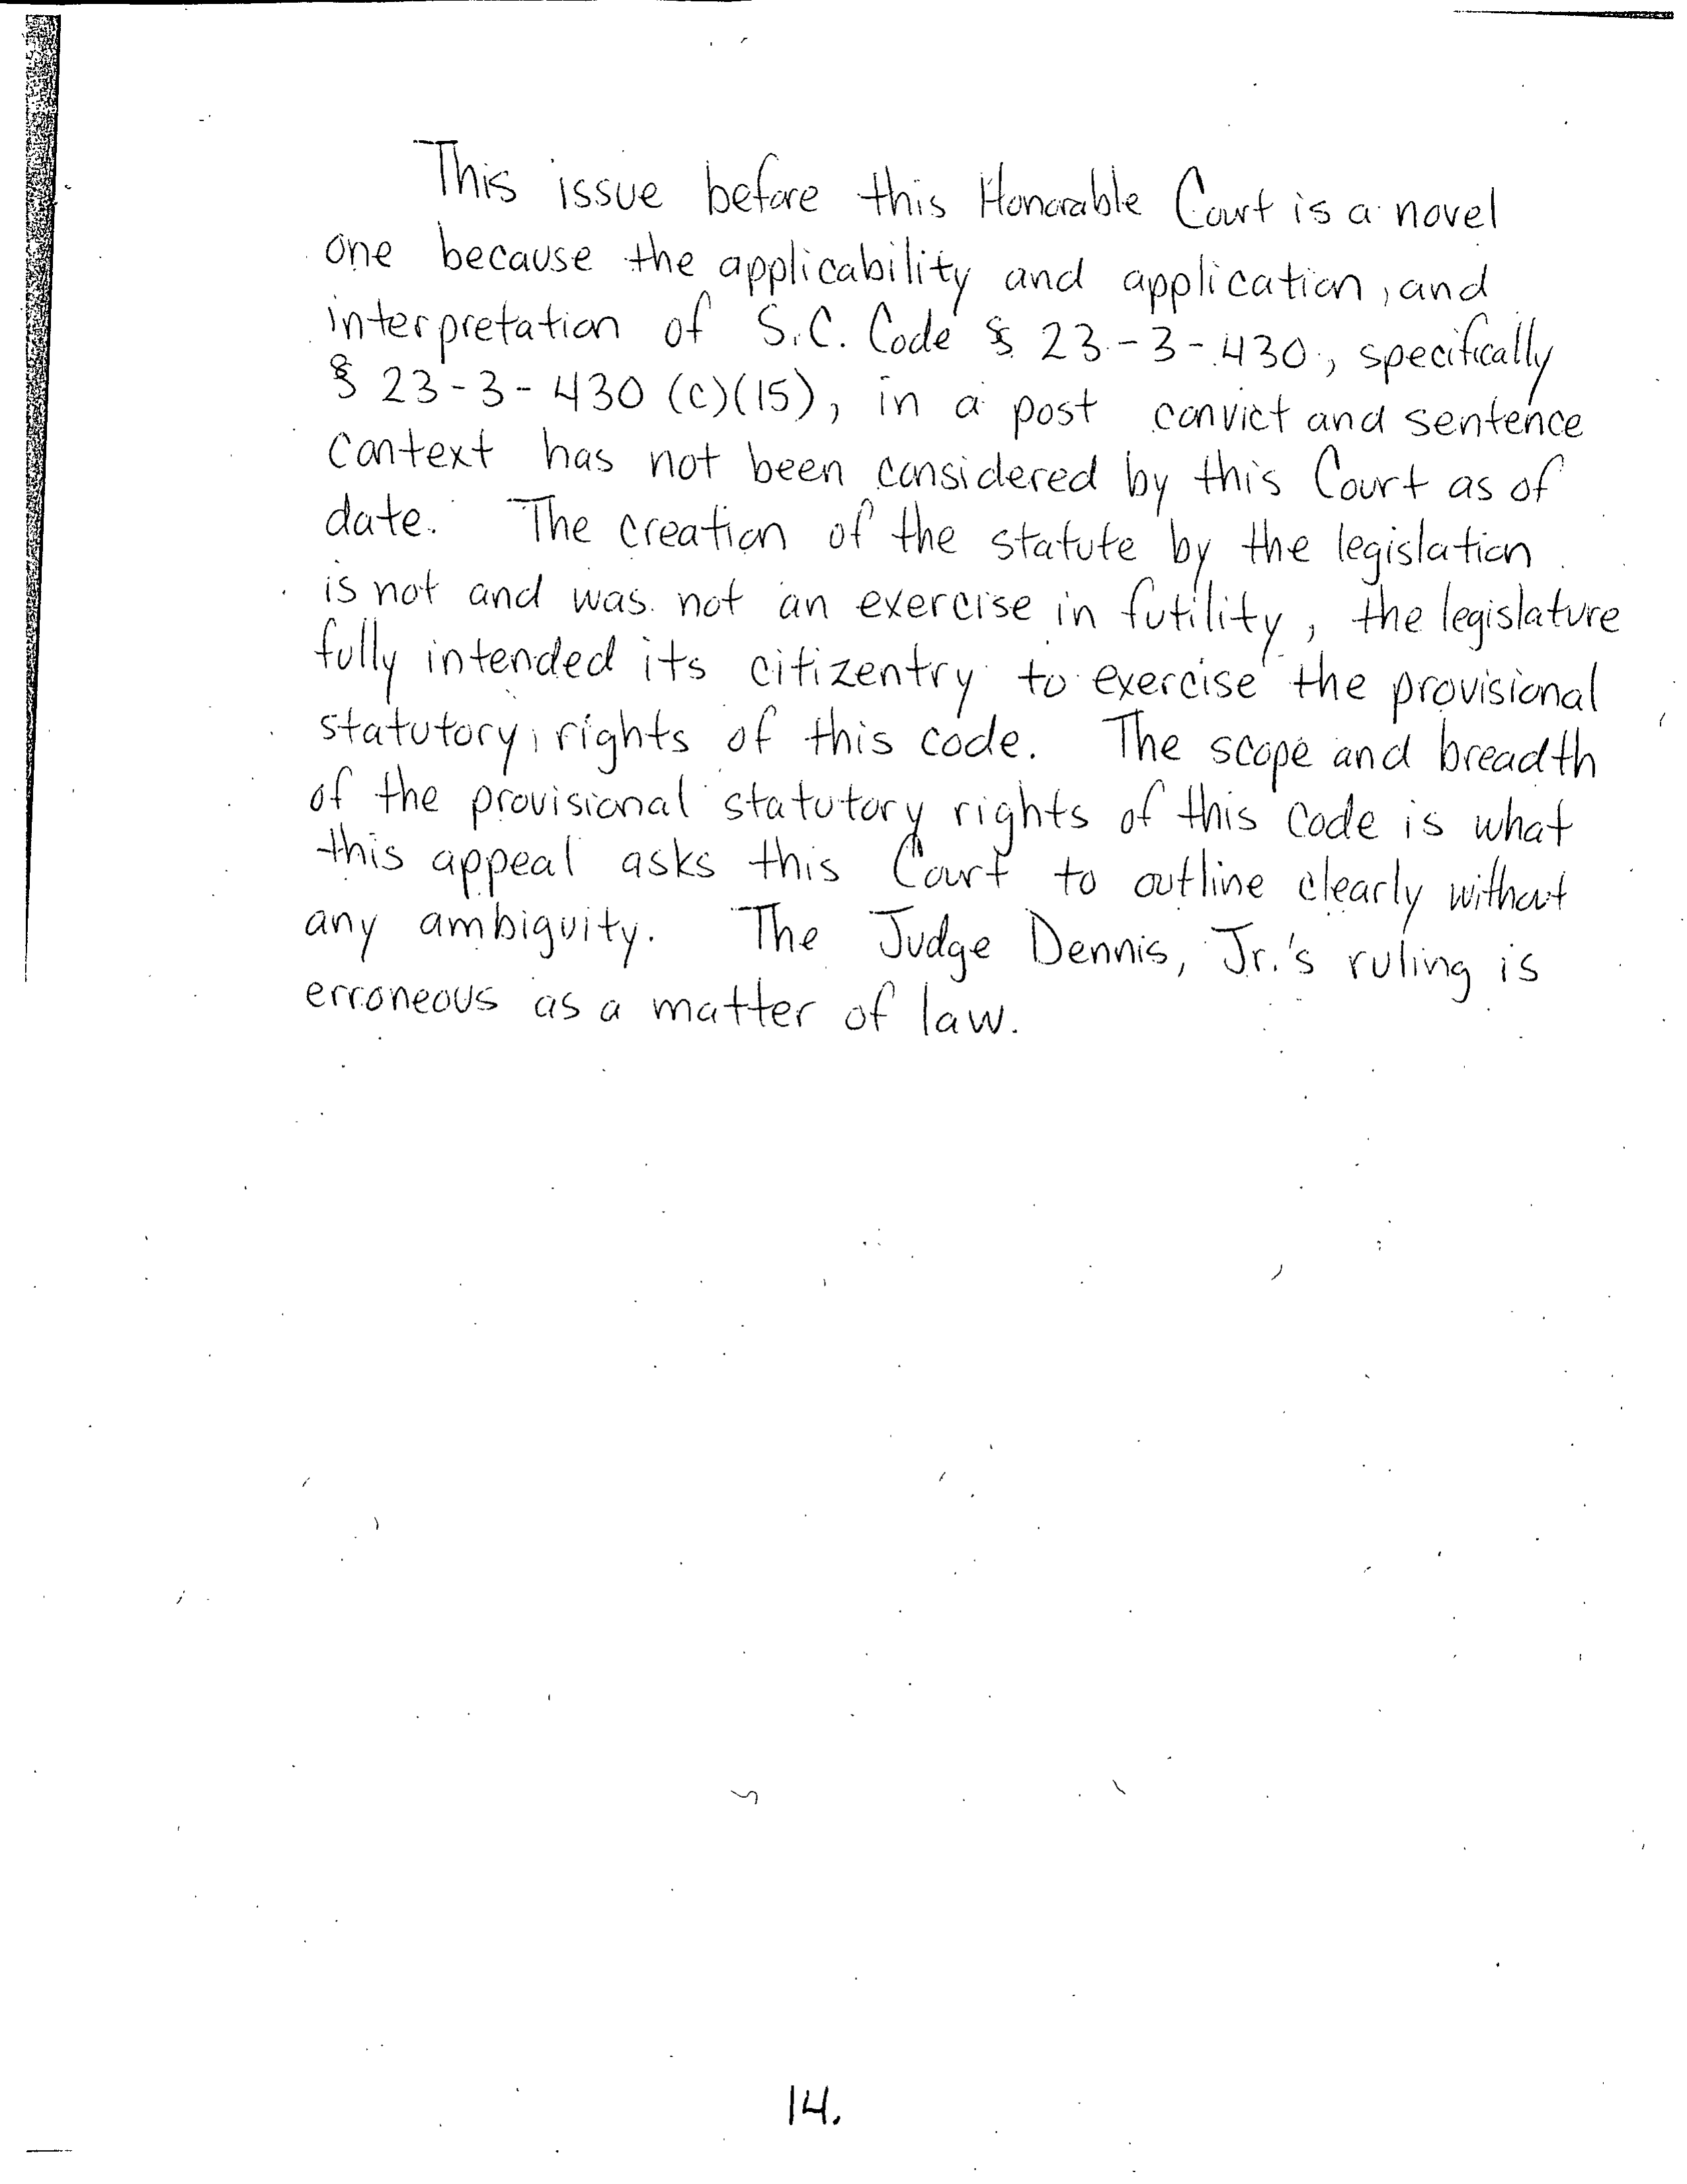 This issue before this Honorable Court is a novel
one because the applicability and application, and
interpretation of S.C. Code § 23-3-430, specifically
§ 23-3-430 (c)(15), in a post convict and sentence
context has not been considered by this Court as of
date. The creation of the statute by the legislation
is not and was not an exercise in futility, the legislature
fully intended its citizentry to exercise the provisional
statutory, rights of this code. The scope and breadth
of the provisional statutory rights of this code is what
this appeal asks this Court to outline clearly without
any ambiguity. The Judge Dennis, Jr.'s ruling is
erroneous as a matter of law.
14.